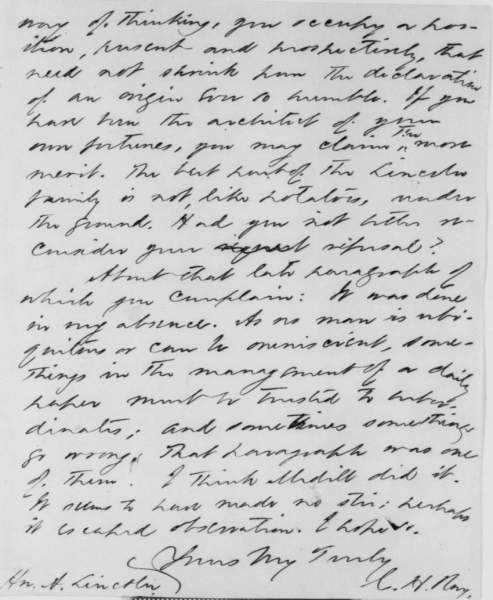 way of thinking, you occupy a pos-
ition, present and prospectively, that
need not shrink from the declaration
of an origin ever so humble. If you
have been the architect of your
own fortunes, you may claim the more
merit. The best part of the Lincoln
family is not, like potatoes, under
the ground. Had you not better re-
consider your refusal?
About that late paragraph of
which you complain: It was done
in my absence. As no man is ubi-
quitous or can be omniscient, some-
things in the management of a daily
paper must be trusted to subor-
dinates; and sometimes somethings
go wrong. That paragraph was one
of them. I think Medill did it.
It seems to have made no stir; perhaps
it escaped observation. I hope so.
Yours Very Truly
Hn. A. Lincoln C. H. Ray.